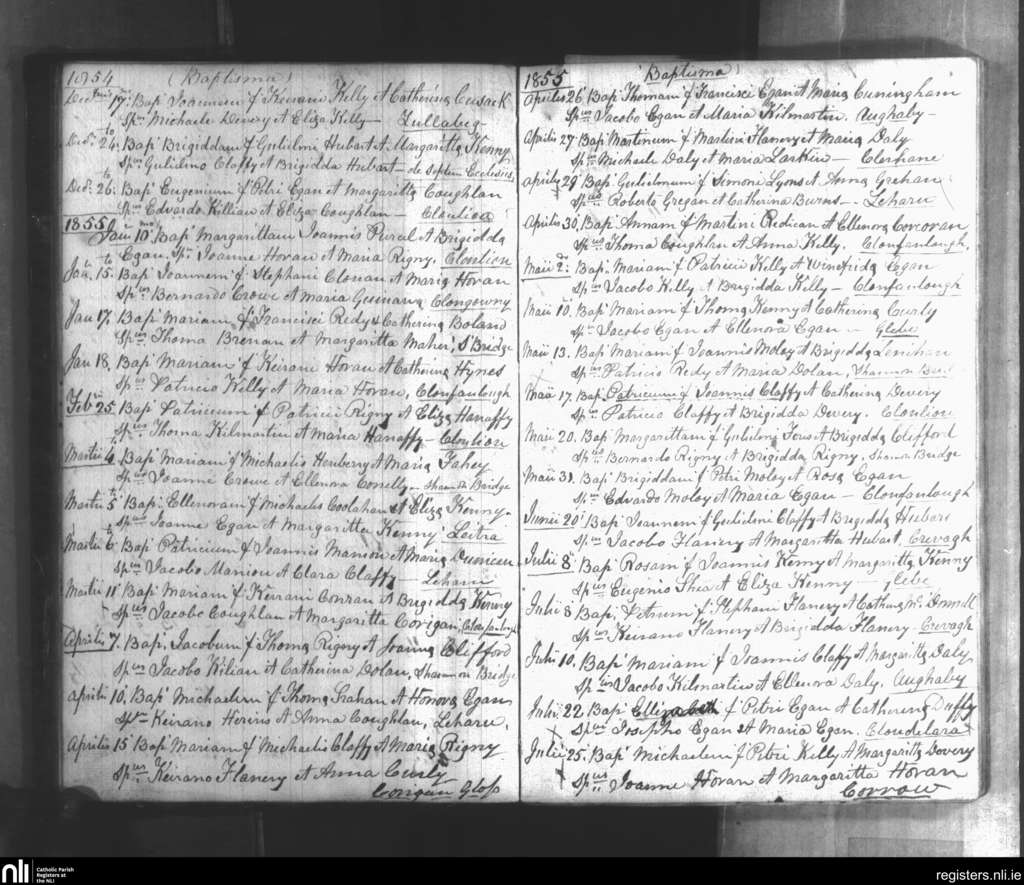 1854 (Baptisma)
Decembris 17. Bap. Joannem f. Keirani Kelly et Catherina Cusack
Spus Michaele Devery et Eliza Kelly — Lullabeg
Decr. 26. Bap. Brigiddam f. Gulielmi Hubart et Margaritta Kenny
Spus Gulielmo Claffy et Brigidda Hubart — de Septem Ecclesiis
Decr. 26. Bap. Eugenium f. Petri Egan et Margaritta Coughlan
Spus Edvardo Killian et Eliza Coughlan — Clonlion
1855
Jan 10 Bap. Margarittam Joannis Purcel et Brigidda
Egan. Spus Joanne Horan et Maria Rigny. Clonlion
Jan. 15. Bap. Joannem f. Stephani Clonan et Maria Horan
Spus Bernardo Crowe et Maria Clongowny
Jan 17. Bap. Mariam f. Francisci Redy & Catherina Boland
Spus Thoma Brenan et Margaritta Maher, S. Bridge
Jan 18. Bap. Mariam f. Keirani Horan et Catherina Hynes
Spus Patricio Kelly et Maria Horan, Clonfanlough
Feb 25. Bap. Patricium f. Patricii Rigny et Eliza Hanaffy
Spus Thoma Kilmartin et Maria Hanaffy — Clonlion
Martii 4. Bap. Mariam f. Michaelis Henbery et Maria Fahey
Spus Joanne Crowe et Ellenora Connelly — Shannon Bridge
Martii 5 Bap. Ellenoram f. Michaelis Coolahan et Eliza Kenny.
Spus Joanne Egan et Margaritta Kenny Leitra
Martii 6 Bap. Patricium f. Joannis Manion et Maria
Spus Jacobo Manion et Clara Claffy — Lehara
Martii 11 Bap. Mariam f. Keirani Conran et Brigidda Kenny
Spus Jacobo Coughlan et Margaritta Corigan, Clonfanlough
Aprilii 7. Bap. Jacobum f. Thoma Rigny et Joanna Clifford
Spus Jacobo Kilian et Catherina Dolan, Shannon Bridge
Aprilii 10. Bap. Michaelem f. Thoma Grahan et Honora Egan
Spus Keirano Horins et Anna Coughlan, Lehara.
Aprilis 15 Bap. Mariam f. Michaelis Claffy et Maria Rigny
Spus Keirano Flanery et Anna Curly
Corrigan Gloss
1855 (Baptisma)
Aprilis 26 Bap. Thomam f. Francisci Egan et Maria Cuningham
Spus Jacobo Egan et Maria Kilmartin. Aughaby —
Aprilis 27 Bap. Martinum f. Martini Flanery et Maria Daly
Spus Michaele Daly et Maria Larkin —
Aprilis 29 Bap. Gulielmum f. Simoni Lyons et Anna Grehan
Spus Roberto Gregan et Catherina Burns — Lehara
Aprilis 30. Bap. Annam f. Martini Redican et Ellenora Corcoran
Spus Thoma Coughlan et Anna Kelly. Clonfanlough.
Maii 2. Bap. Mariam f. Patricii Kelly et Winefrida Egan
Spus Jacobo Kelly et Brigidda Kelly — Clonfanlough
Maii 10. Bap. Mariam f. Thoma Kenny et Catherina Curly
Spus Jacobo Egan et Ellenora Egan — Glebe
Maii 13. Bap. Mariam f. Joannis Moley et Brigidda Lenehan
Spus Patricio Redy et Maria Dolan, Shannon
Maii 17. Bap. Patricium f. Joannis Claffy et Catherina Devery
Spus Patricio Claffy et Brigidda Devery. Clonlion
Maii 20. Bap. Margarittam f. Gulielmi et Brigidda Clifford
Spus Bernardo Rigny et Brigidda Rigny. Shannon Bridge
Maii 31. Bap. Brigiddam f. Petri Moley et Rosa Egan
Spus Edvardo Moley et Maria Egan — Clonfanlough
Junii 20 Bap. Joannem f. Gulielmi Claffy et Brigidda Hubart
Spus Jacobo Flanery et Margaritta Hubart, Crevagh
Julii 8 Bap. Rosam f. Joannis Kenny et Margaritta Kenny
Spus Eugenio Shea et Eliza Kenny — Glebe
Julii 8 Bap. Petrum f. Stephani Flanery et Catherina
Spus Keirano Flanery et Brigidda Flanery — Crevagh
Julii 10. Bap. Mariam f. Joannis Claffy et Margaritta Daly
Spus Jacobo Kilmartin et Ellenora Daly. Aughaby
Julii 22 Bap. Elizabeth f. Petri Egan et Catherina Duffy
Spus Josepho Egan et Maria Egan. Cloudelara
Julii 25. Bap. Michaelem f. Petri Kelly et Margaritta Dovery
Spus Joanne Horan et Margaritta Horan
Corrow
nli Catholic Parish
Registers at
the NLI
registers.nli.ie